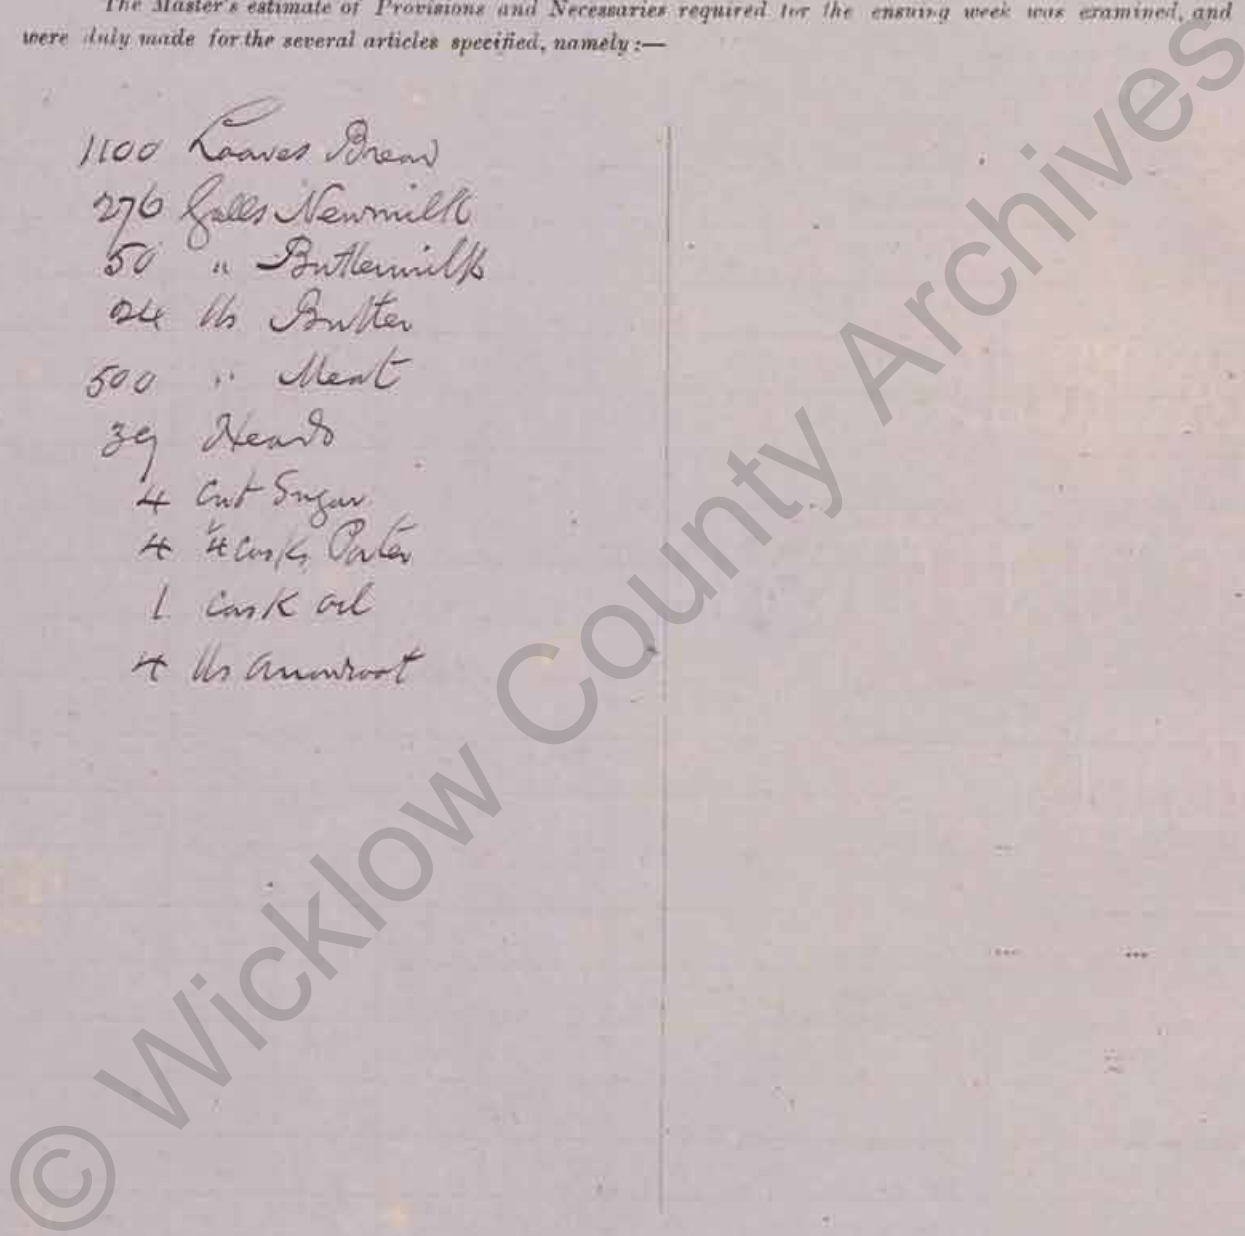 The Master's estimate of Provisions and Necessaries required for the ensuing week was examined, and
were duly made for the several articles specified, namely:—
1100 Loaves Bread
276 Galls Newmilk
50 " Buttermilk
24 lbs Butter
500 " Meat
39 Heads
4 Cwt Sugar
4 ¼ Casks Porter
1 Cask Oil
4 lbs Arrowroot
© Wicklow County Archives